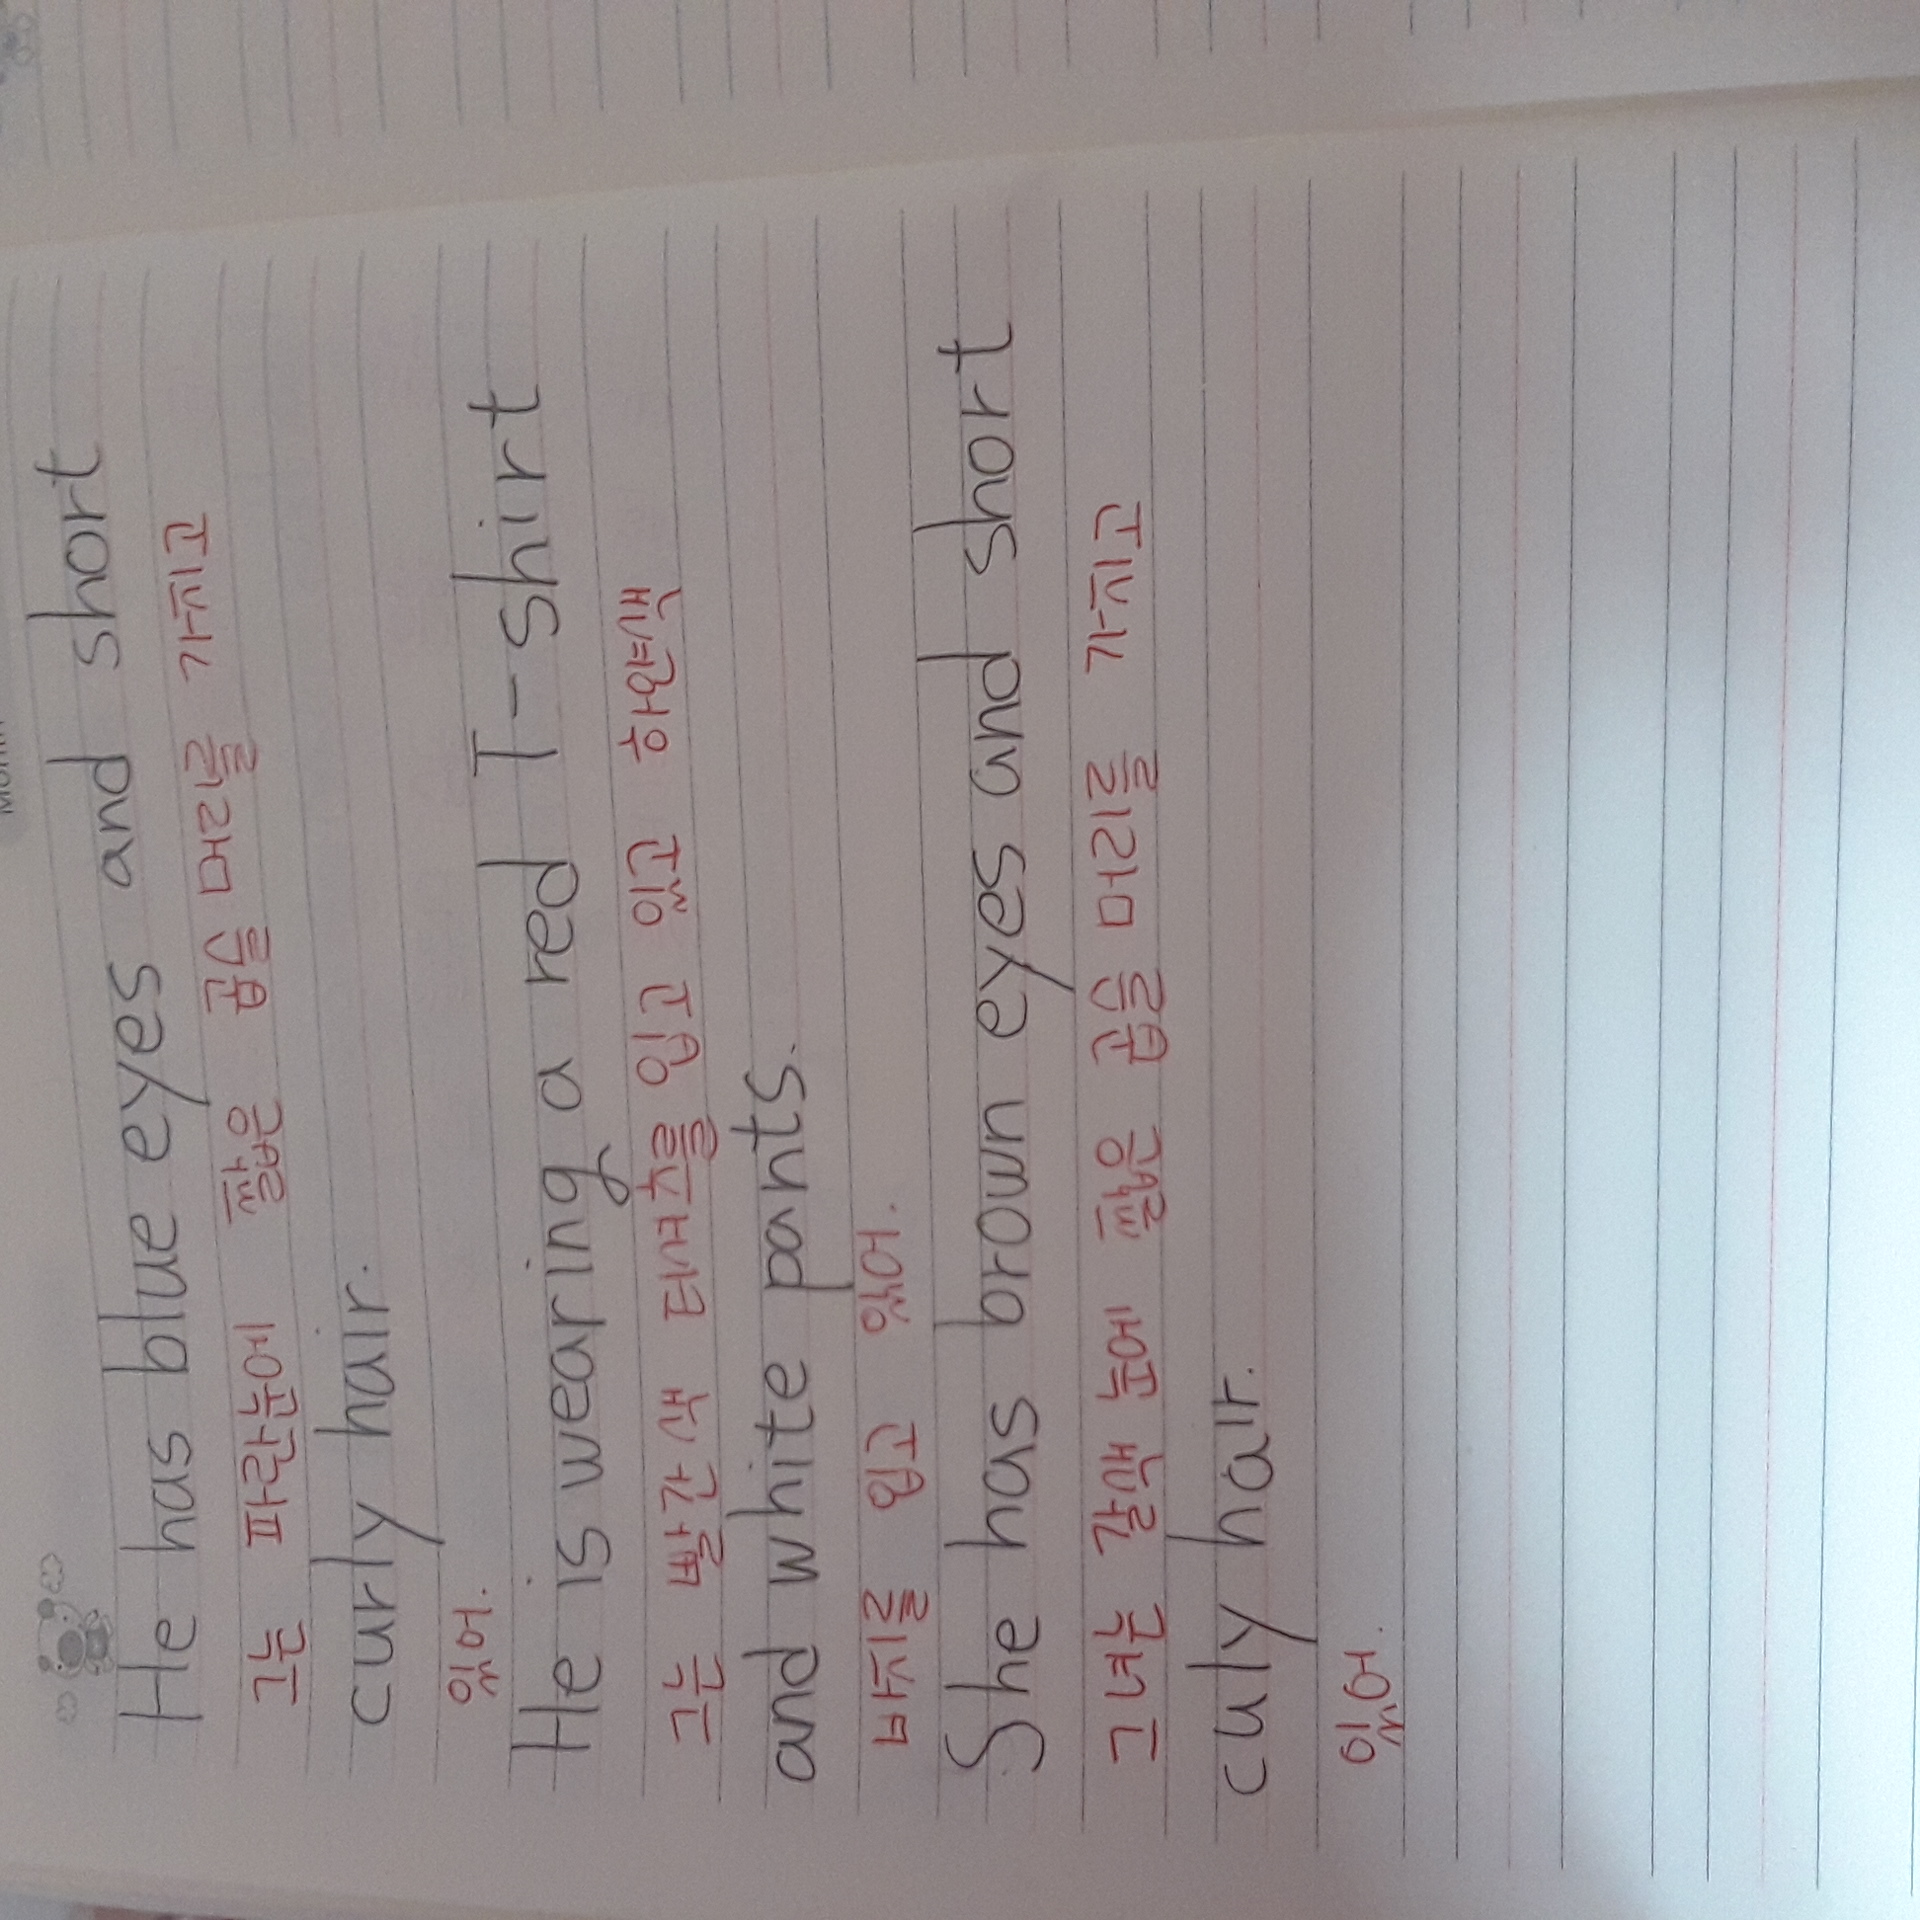 He has blue eyes and short
그는 파란눈에 짧은 곱슬머리를 가지고
curly hair.
있어.
He is wearing a red T-shirt
그는 빨간 색 티셔츠를 입고 있고 하얀색
and white pants.
바지를 입고 있어.
She has brown eyes and short
그녀는 갈색 눈에 짧은 곱슬 머리를 가지고
culy hair.
있어.